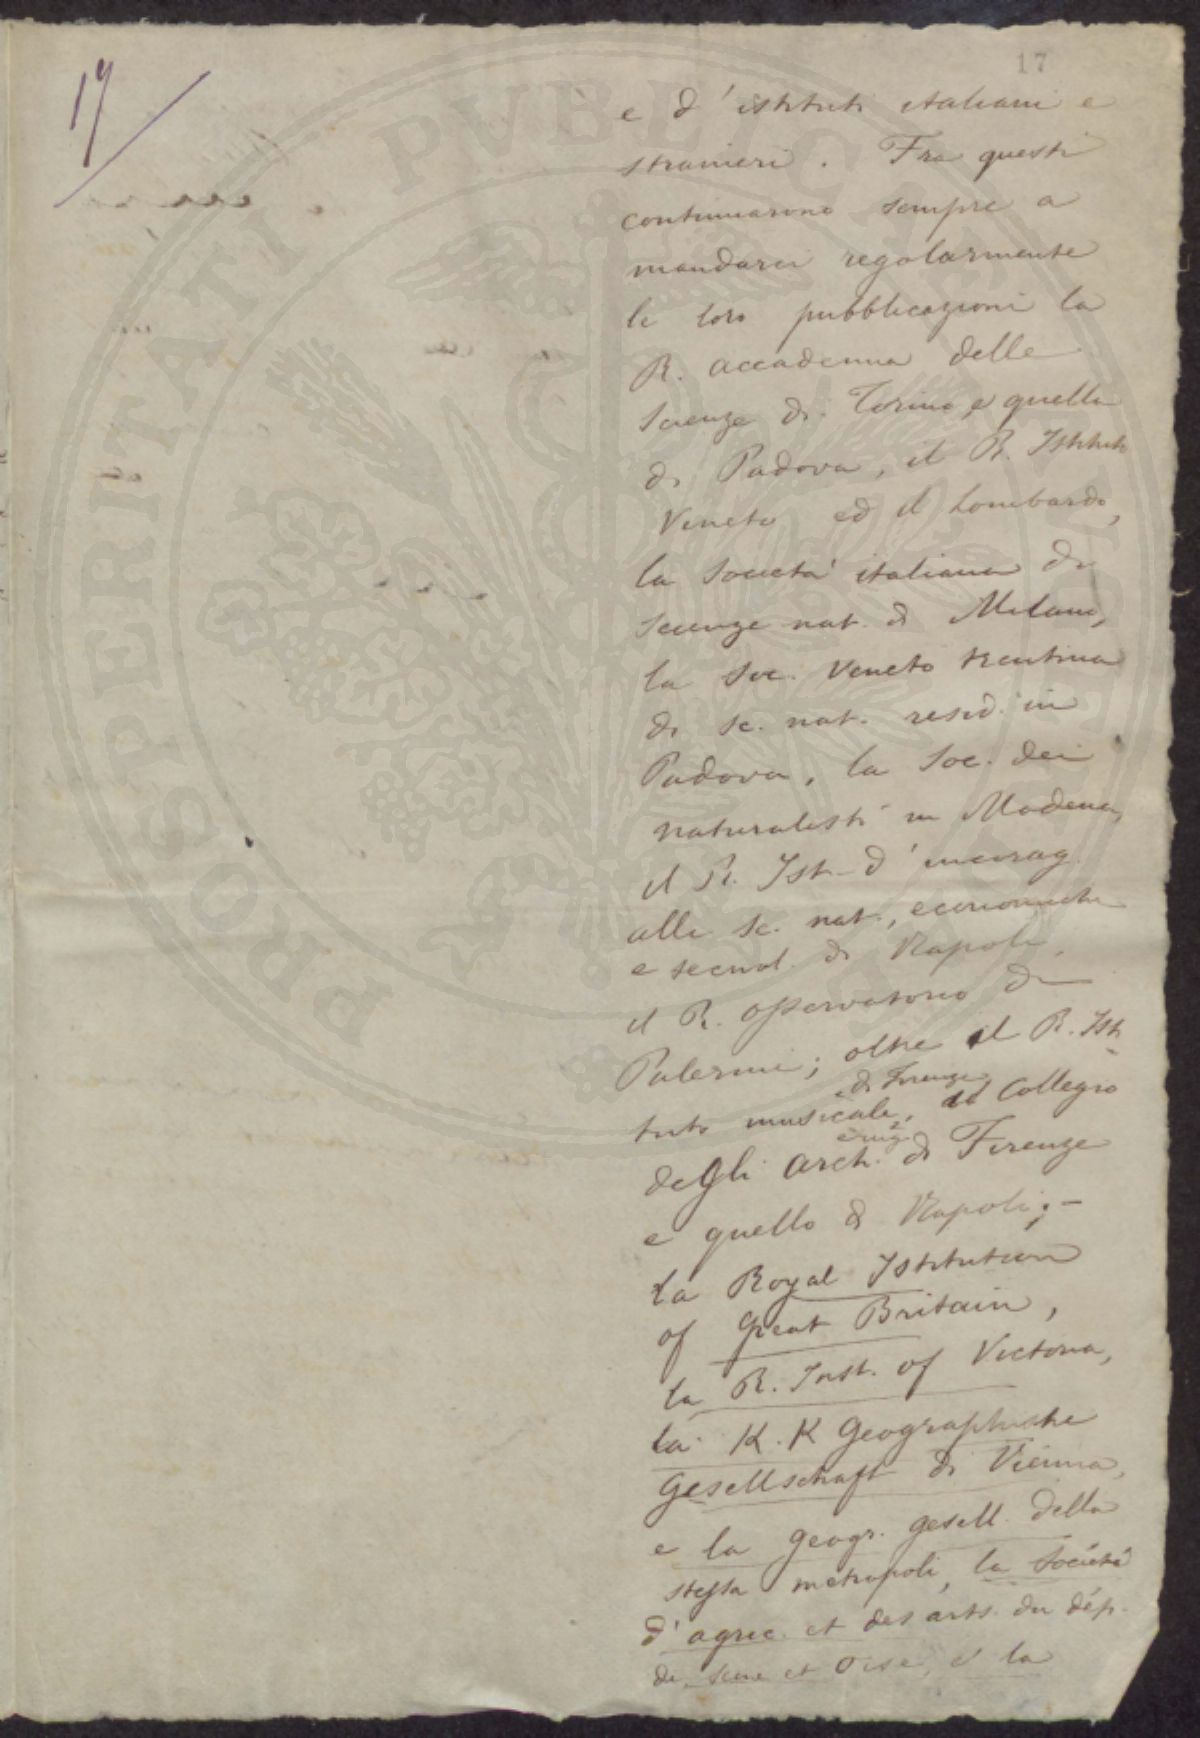 17
17
e d'istituti italiani e
stranieri. Fra questi
continuarono sempre a
mandarci regolarmente
le loro pubblicazioni la
R. accademia delle
Scienze di Torino e quella
di Padova, il R. Istituto
Veneto ed il Lombardo,
la Società italiana di
scienze nat. di Milano,
la Soc. Veneto trentina
di sc. nat. resid. in
Padova, la Soc. dei
naturalisti in Modena,
il R. Ist. d'incorag.
alle sc. nat., economiche
e tecnol. di Napoli,
il R. osservatorio di
Palermo; oltre il R. Isti
di Firenze
tuto musicale, il Collegio
e ing.
degli arch. di Firenze
e quello di Napoli; –
la Royal Istitution
of Great Britain,
la R. Inst. of Victoria,
la K. K Geographische
Gesellschaft di Vienna,
e la geogr. gesell. della
stessa metropoli, la Société
d'agric. et des arts. du dép.
de Seine et Oise, e la
PROSPERITATI PVBLICAE